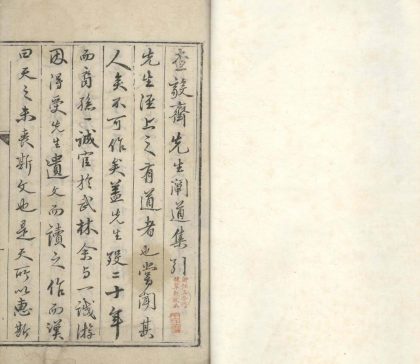 查毅齋先生闡道集引
先生涇上之有道者也嘗聞其
人矣不可作矣蓋先生歿二十年
而裔孫一誠官於武林余與一誠游
因得受先生遺文而讀之作而嘆
曰天之未喪斯文也是天所以惠斯